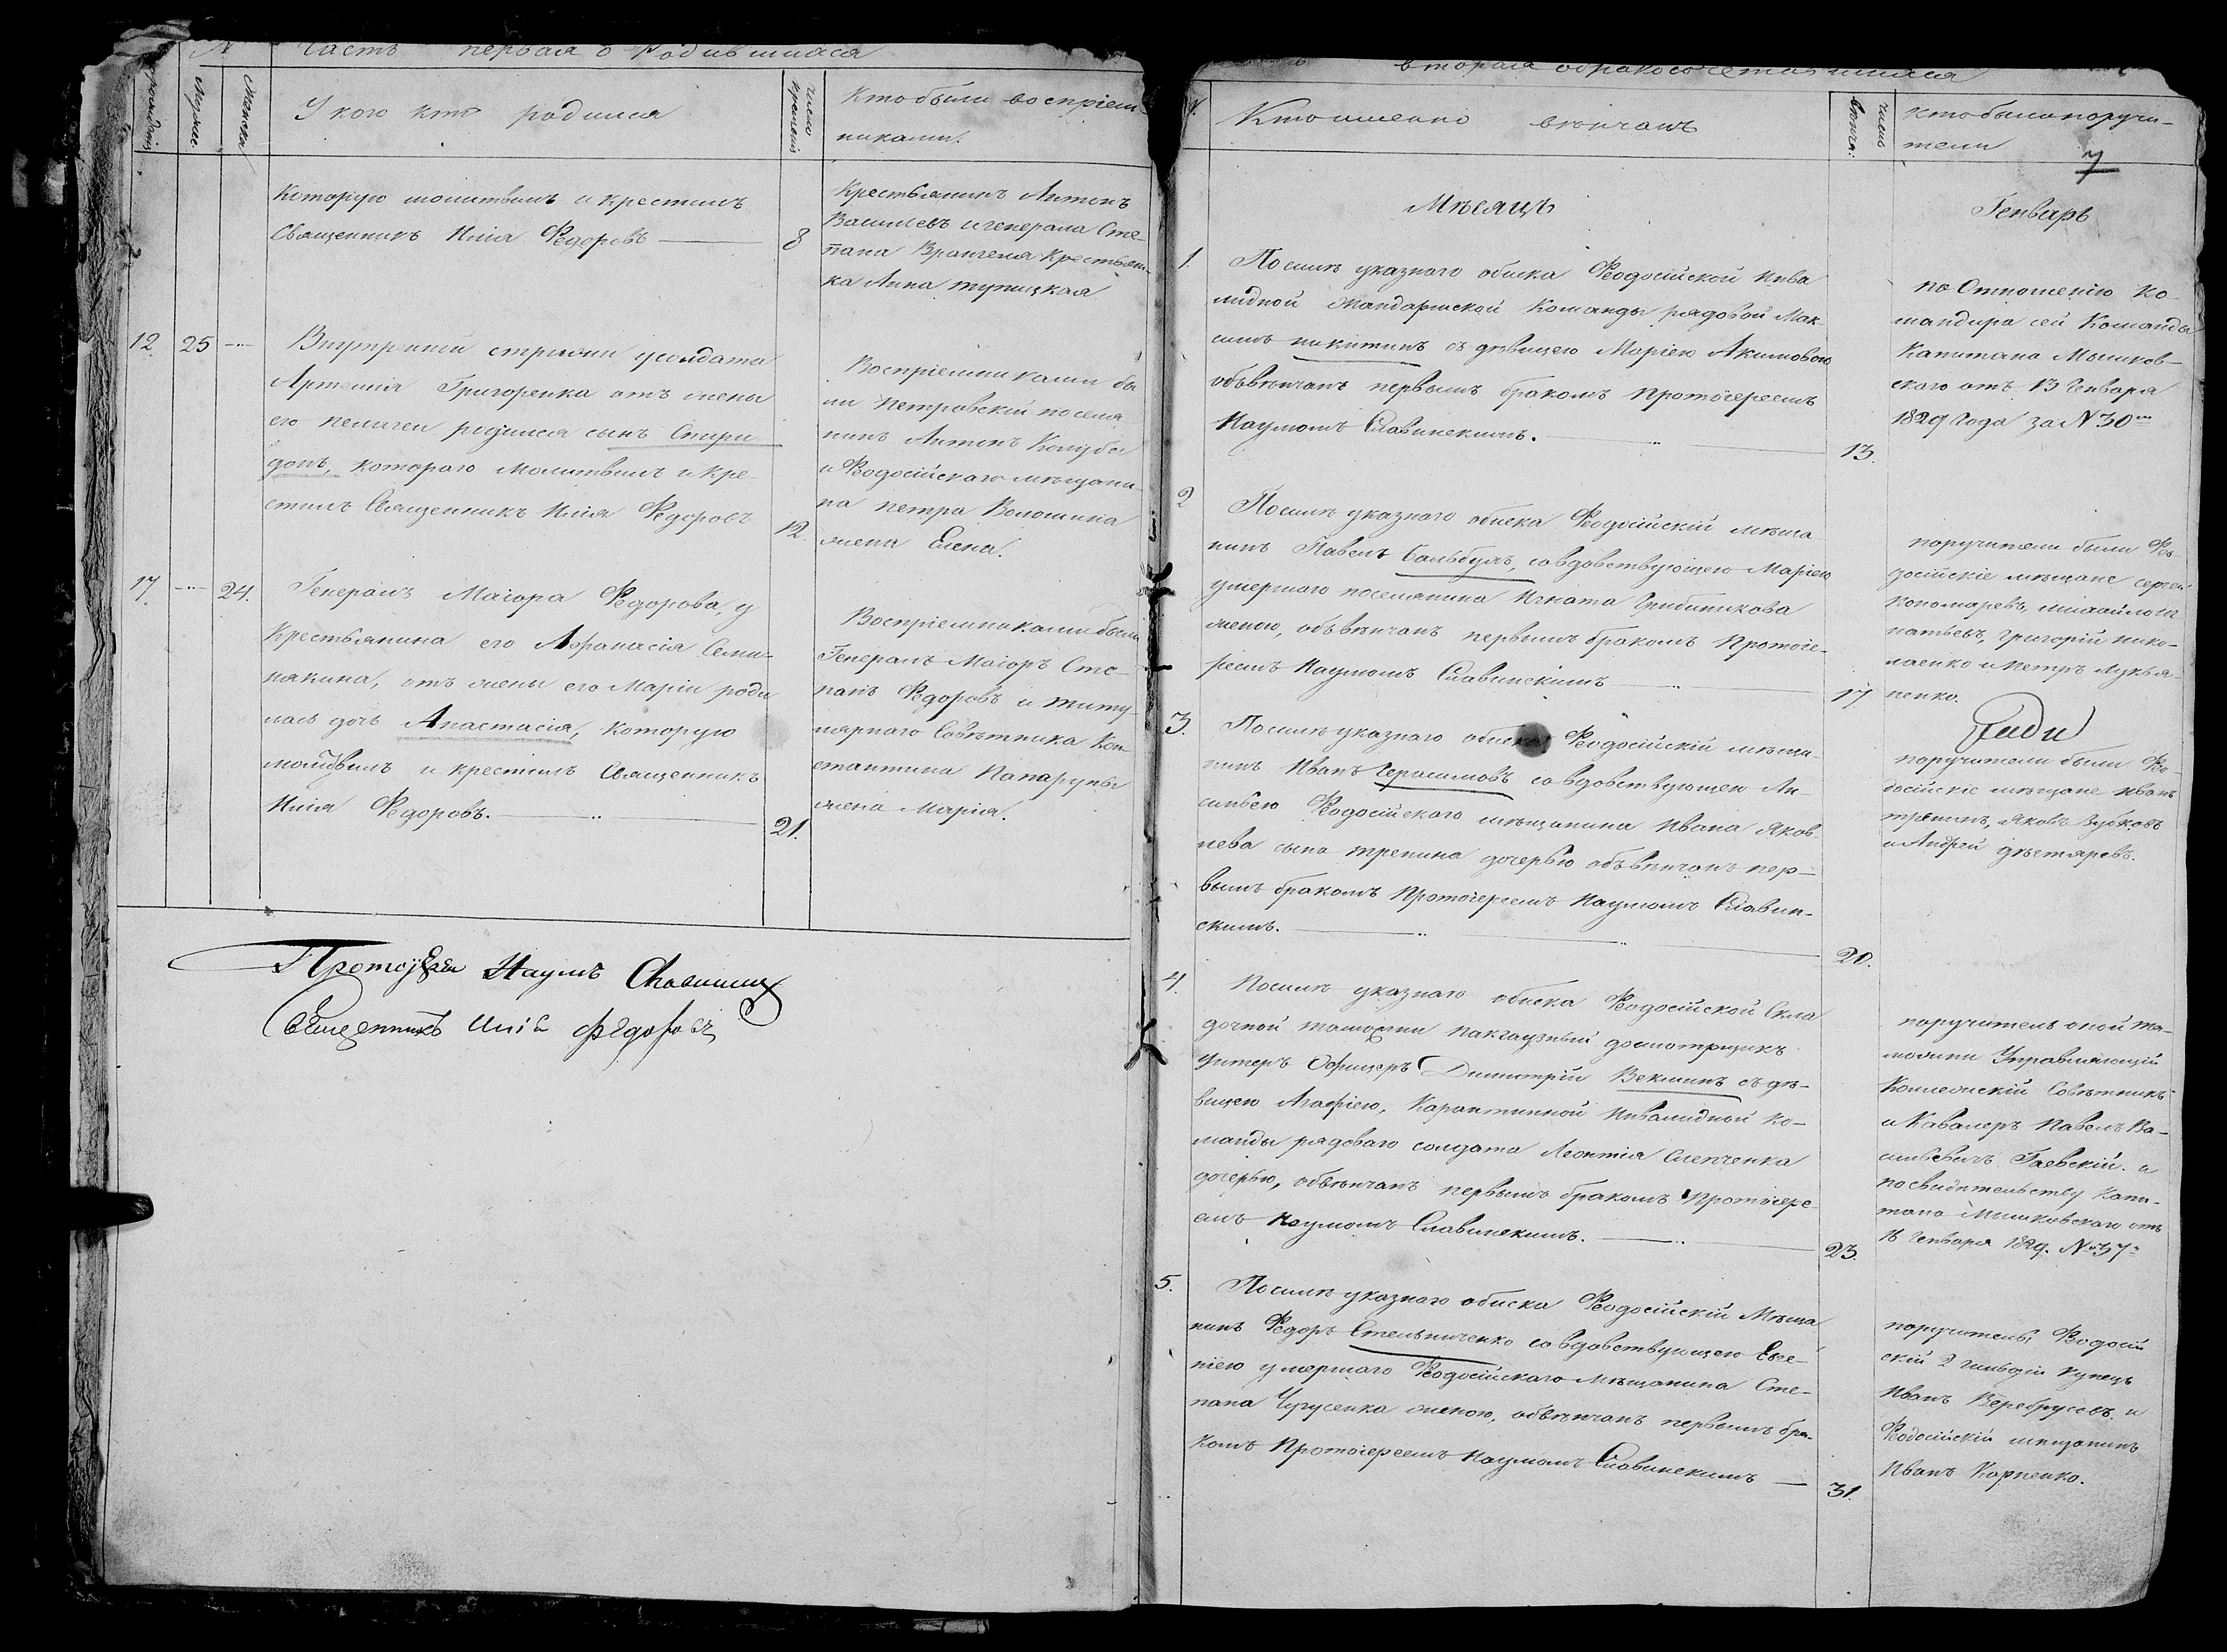 Часть первая о Родившихся
рождения
Мужес.
Женска
У кого кто родился
число крещенія
Кто были воспріем-
никами.
Которую молитвилъ и крестилъ
Священникъ Илія Федоровъ
8
Крестьянинъ Антонъ
Васильевъ и генерала Сте-
пана Врангеля Крестьян-
ка Анна
12.
25
Внутренней стражи у солдата
Артемія Григоренка отъ жены
его Пелагеи родился сынъ Спири
донъ, котораго Молитвилъ и кре-
стилъ Священникъ Илія Федоровъ
12.
Воспріемниками бы
ли Петровскій поселя
нинъ Антонъ
и Феодосійскаго мѣщани
на петра Волошина
жена Елена.
17.
24.
Генералъ Маіора Федорова, у
Крестьянина его Афанасія Семи-
някина, отъ жены его Маріи роди
лась дочь Анастасія, которую
молитвилъ и крестилъ Священникъ
Илія Федоровъ.
21.
Воспріемниками были
Генералъ Маіоръ Сте-
панъ Федоровъ и титу-
лярнаго Совѣтника Кон
стантина Папаруны
жена Марія.
Протоіерей Наумъ Славинскій
Священникъ Илія Федоровъ
вторая о бракосочетавшихся
№.
Кто именно вѣнчанъ
число вѣнча:
Кто были поручи-
тели
7
Мѣсяцъ
Генварь
1.
Послѣ указнаго обыска Феодосійской Инва
лидной Жандармской Команды рядовой Мак-
симъ никитинъ съ дѣвицею Маріею Акимовою
обвѣнчанъ первымъ бракомъ Протоіереемъ
Наумомъ Славинскимъ.
13.
по Отношенію Ко-
мандира сей Команды
Капитана Мышков-
скаго отъ 13 Генваря
1829 Года за № 30м
2
Послѣ указнаго обыска Феодосійскій мѣща
нинъ Павелъ Бальбулъ, со вдовствующею Маріею
умершаго поселянина Игната Грибиникова
женою, обвѣнчанъ первымъ бракомъ Протоіе-
реемъ Наумомъ Славинскимъ
17
поручители были Фео-
досійскіе мѣщане сергей
пономаревъ, михайло иг
натьевъ, григорій нико-
лаенко и петръ Лукья-
ненко.
3.
Послѣ указнаго обыска Феодосійскій мѣща-
нинъ Иванъ Герасимовъ со вдовствующею Ан-
 Феодосійскаго мѣщанина Ивана Яков-
лева сына трепина дочерью обвѣнчанъ пер-
вымъ бракомъ Протоіереемъ Наумомъ Славин-
скимъ.
20.
поручители были Фео-
досійскіе мѣщане иванъ
трепинъ, Яковъ Зубковъ
и Андрей дѣгтяревъ.
4.
Послѣ указнаго обыска Феодосійской Скла
дочной таможни пакгаузный досмотрщикъ
Унтеръ Офицеръ Димитрій Векшинъ съ дѣ-
вицею Агафіею, Карантинной Инвалидной Ко-
манды рядоваго солдата Леонтія Слепченка
дочерью, обвѣнчанъ первымъ бракомъ Протоіере
емъ Наумомъ Славинскимъ.
23.
поручитель оной та-
можни Управляющій
Коллежскій Совѣтникъ
и Кавалеръ Павелъ Ва-
сильевичъ Гаевскій. и
по свидѣтельству Капи-
тана Мышковскаго отъ
16 Генваря 1829. № 37.
5.
Послѣ указнаго обыска Феодосійскій Мѣща
нинъ Федоръ Стельниченко со вдовствующею Евге-
ніею умершаго Феодосійскаго мѣщанина Сте-
пана Чугусенка женою, обвѣнчанъ первымъ бра-
комъ Протоіереемъ Наумомъ Славинскимъ
31.
поручитель, Феодосій
скій 2 гильдіи купецъ
Иванъ Веребрусовъ и
Феодосійскій мѣщанинъ
Иванъ Карпенко.